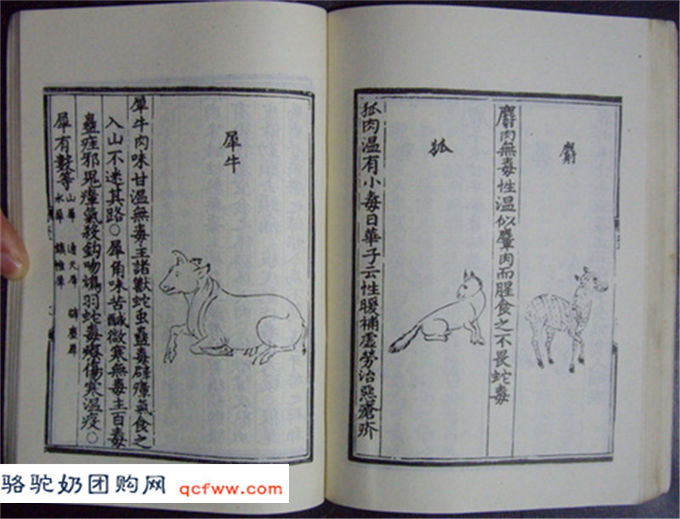 麝
麝肉無毒性温似麞肉而腥食之不畏蛇毒
狐
狐肉温有小毒日華子云性暖補虛勞治惡瘡疥
犀牛
犀牛肉味甘温無毒主諸獸蛇虫蠱毒辟瘴氣食之
入山不迷其路○犀角味苦鹹微寒無毒主百毒
蠱疰邪鬼瘴氣殺鈎吻鴆羽蛇毒療傷寒温疫○
犀有數等
山犀 通天犀
水犀
骆驼奶团购网 qcfww.com